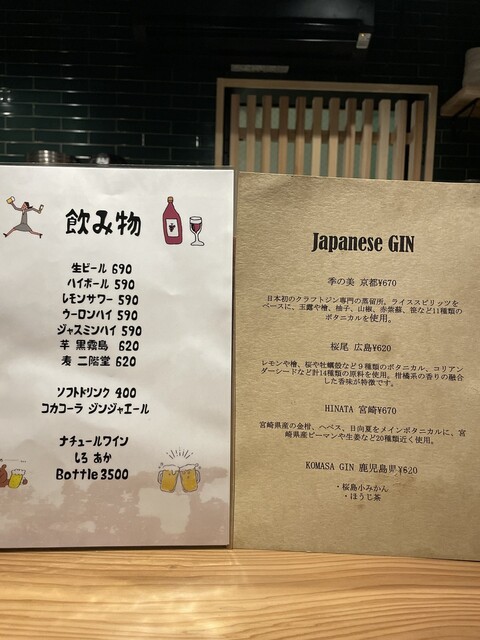 飲み物
生ビール 690
ハイボール 590
レモンサワー 590
ウーロンハイ 590
ジャスミンハイ 590
芋 黒霧島 620
麦 二階堂 620
ソフトドリンク 400
コカコーラ ジンジャエール
ナチュールワイン
しろ あか
Bottle 3500
Japanese GIN
季の美 京都¥670
日本初のクラフトジン専門の蒸留所。ライススピリッツを
ベースに、玉露や檜、柚子、山椒、赤紫蘇、笹など11種類の
ボタニカルを使用。
桜尾 広島¥620
レモンや檜、桜や牡蠣殻など９種類のボタニカル、コリアン
ダーシードなど計14種類の原料を使用。柑橘系の香りの融合
した香味が特徴です。
HINATA 宮崎¥670
宮崎県産の金柑、へベス、日向夏をメインボタニカルに、宮
崎県産ピーマンや生姜など20種類近く使用。
KOMASA GIN 鹿児島県¥620
・桜島小みかん
・ほうじ茶